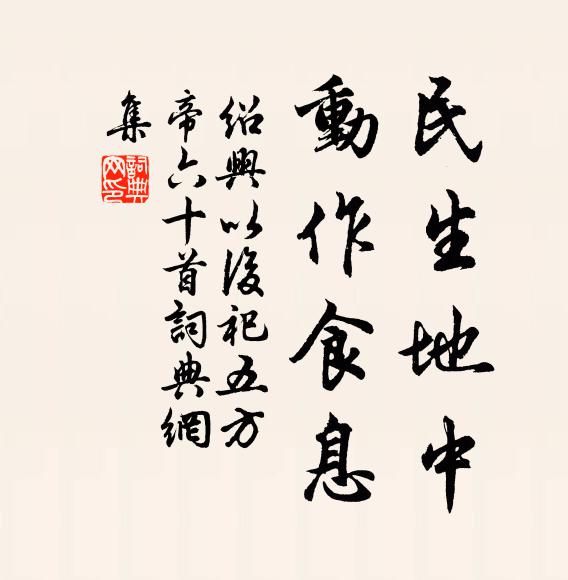 民生地中
動作食息
紹興以後祀五方
帝六十首詞典網
集
詞典
网印